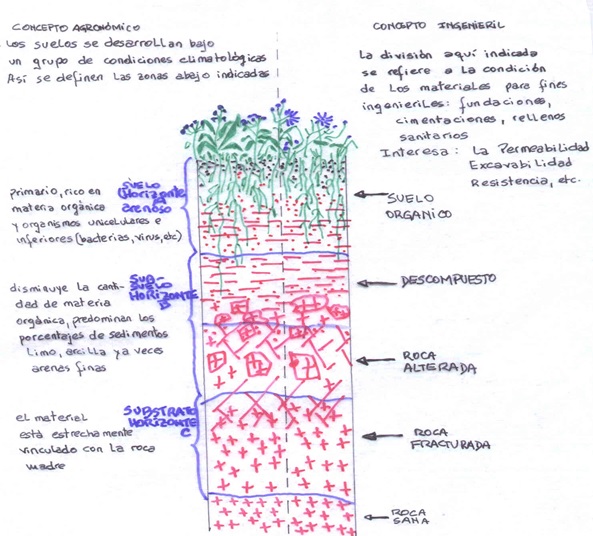 CONCEPTO AGRONÓMICO
Los suelos se desarrollan bajo
un grupo de condiciones climatológicas
Así se definen las zonas abajo indicadas
CONCEPTO INGENIERIL
La división aquí indicada
se refiere a la condición
de Los materiales para fines
ingenieriles: fundaciones,
cimentaciones, rellenos
sanitarios
Interesa: La Permeabilidad
Excavabilidad
Resistencia, etc.
Primario, rico en
materia orgánica
y organismos unicelulares e
inferiores (baderias, virus, etc)
SUELO
(Horizonte
A
arenoso
disminuye la canti-
dad de materia
orgánica, predominan los
porcentajes de sedimentos
Limo, arcilla y a veces
arenas finas
SUB-
SUELO
HORIZONTE
B
el material
está estrechamente
vinculado con la roca
madre
SUBSTRATO
HORIZONTE
C
SUELO
ORGANICO
DESCOMPUESTO
ROCA
ALTERADA
ROCA
FRACTURADA
ROCA
SANA